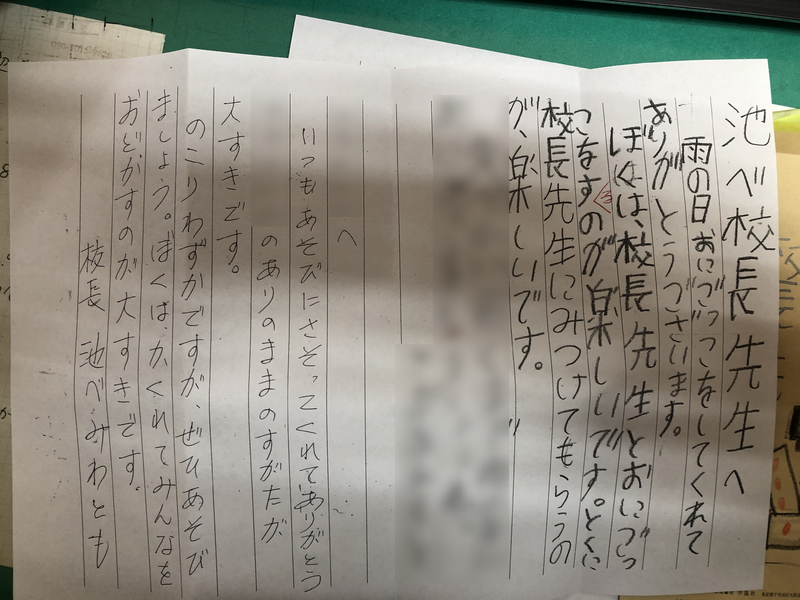 池べ校長先生へ
雨の日おにごっこをしてくれて
ありがとうございます。
ぼくは、校長先生とおにごっ
こをするのが楽しいです。とくに
校長先生にみつけてもらうの
が、楽しいです。
へ
いつもあそびにさそってくれてありがとう
のありのままのすがたが
大すきです。
のこりわずかですが、ぜひあそび
ましょう。ぼくは、かくれてみんなを
おどかすのが大すきです。
校長 池べみわとも